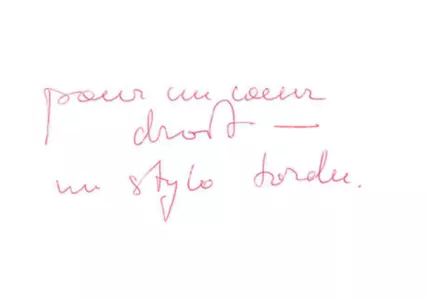 pour un coeur
droit —
un stylo tordu.